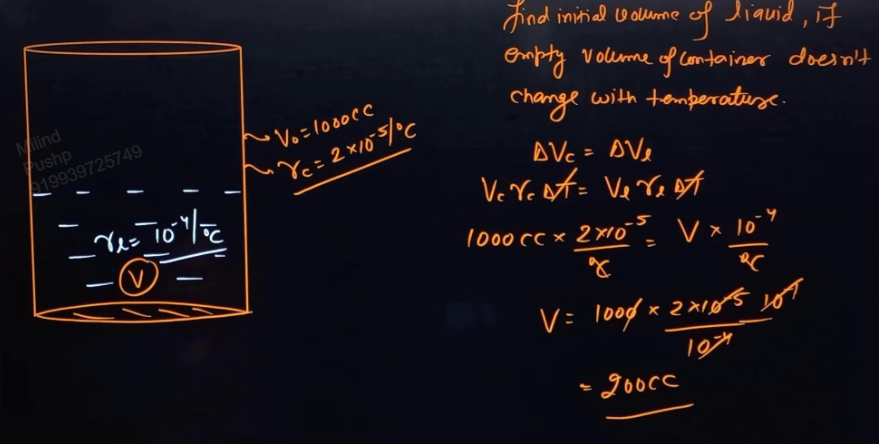 find initial volume of liquid, if
empty volume of container doesn't
change with temperature.
V₀ = 1000cc
γc = 2×10⁻⁵/°C
Milind
Pushp
919939725749
γℓ = 10⁻⁴/°C
V
ΔVc = ΔVℓ
Vc γc ΔT = Vℓ γℓ ΔT
1000 cc × 2×10⁻⁵/°C = V × 10⁻⁴/°C
V = 1000 × 2×10⁻⁵ 10⁻¹ / 10⁻⁴
= 200cc